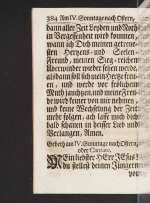 384 Am IV. Sonntage nach Ostern,
dann aller Zeit Leyden und Noth
in Vergessenheit wird kommen,
wann ich Dich meinen getreue-
sten Hertzens- und Seelen-
Freund, meinen Sieg-reichen
Überwinder wieder sehen werde,
alsdann soll sich mein Hertz freu-
en, und werde vor frölichem
Muth jauchzen, und meine Freu-
de wird keiner von mir nehmen,
und keine Wechselung der
mehr folgen, ach lasse mich dich
bald schauen in deiner Lieb und
Verlangen, Amen.
Gebet am IV. Sonntage nach Ostern,
oder Cantate.
Mein liebster HErr JEsus!
du stellest deinen Jüngern